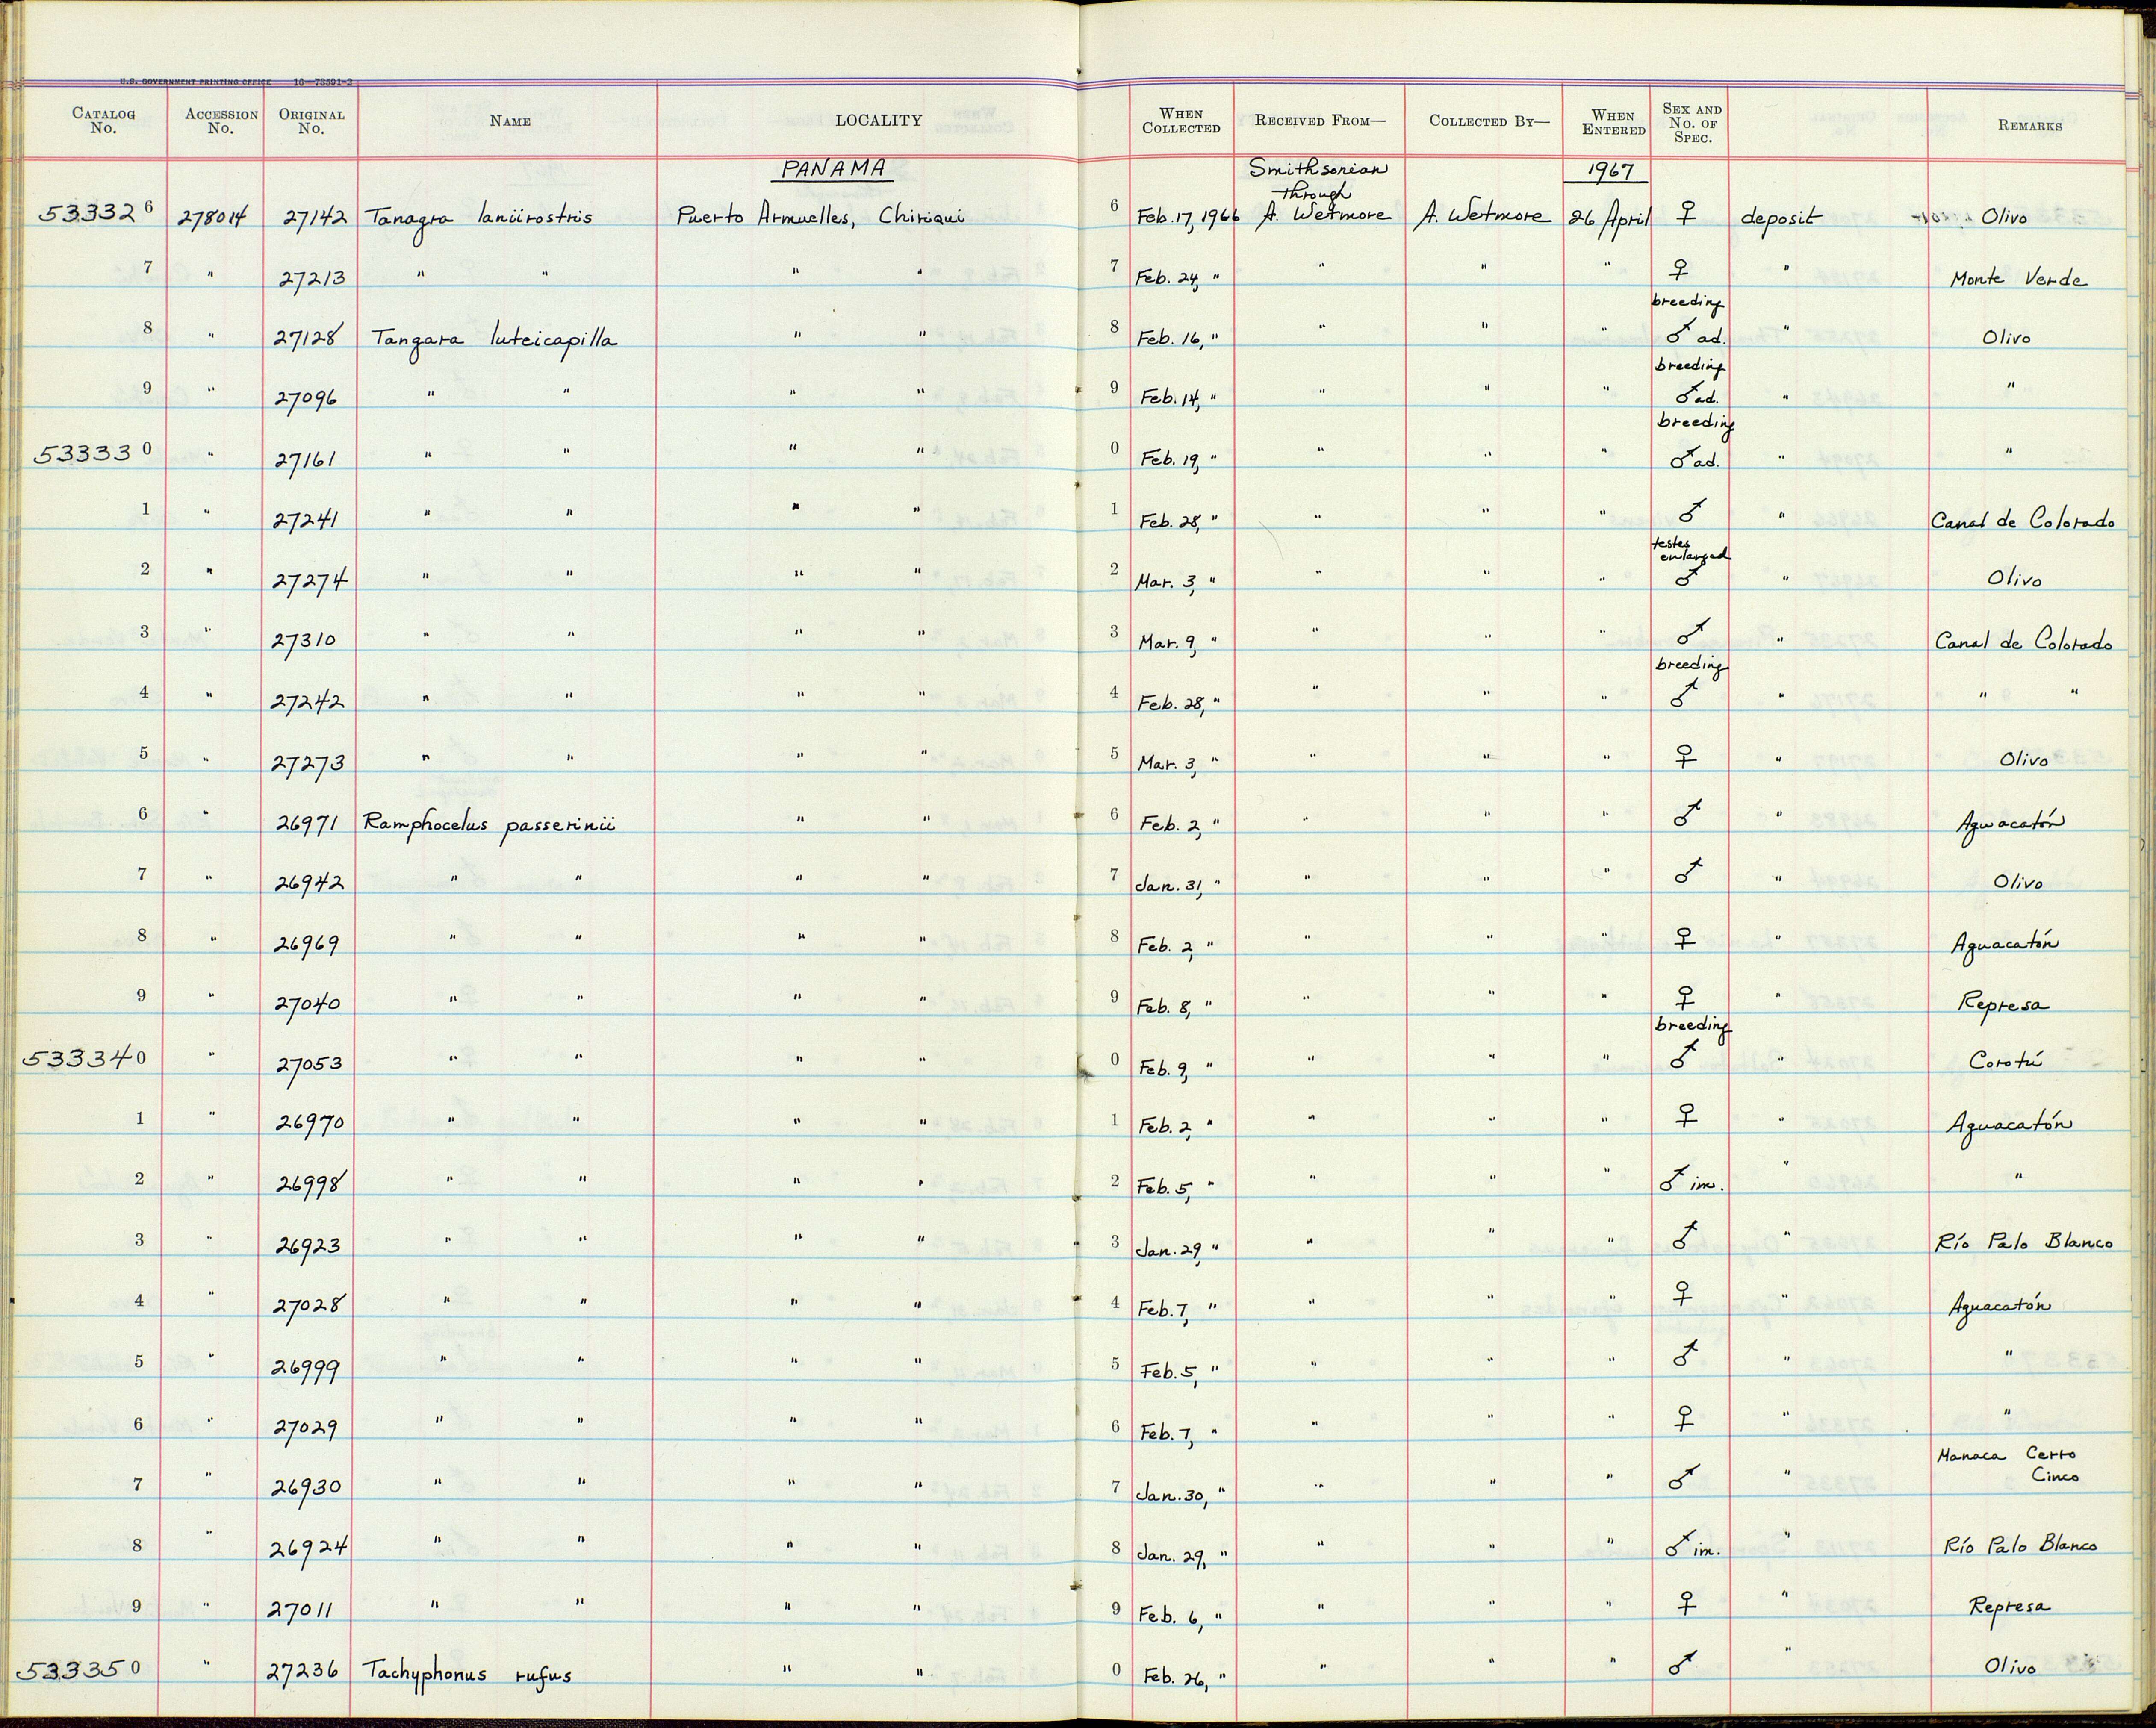 U.S. GOVERNMENT PRINTING OFFICE 16—73591-2
CATALOG No. ACCESSION No. ORIGINAL No. NAME LOCALITY WHEN COLLECTED RECEIVED FROM— COLLECTED BY— WHEN ENTERED SEX AND No. OF SPEC. REMARKS
PANAMA Smithsonian through 1967
533326 278014 27142 Tanagra laniirostris Puerto Armuelles, Chiriqui 6 Feb. 17, 1966 A. Wetmore A. Wetmore 26 April ♀ deposit Olivo
7 " 27213 " " " " 7 Feb. 24, " " " " ♀ " Monte Verde
8 " 27128 Tangara luteicapilla " " 8 Feb. 16, " " " " breeding ♂ ad. " Olivo
9 " 27096 " " " " 9 Feb. 14, " " " " breeding ♂ ad. " "
533330 " 27161 " " " " 0 Feb. 19, " " " " breeding ♂ ad. " "
1 " 27241 " " " " 1 Feb. 28, " " " " ♂ " Canal de Colorado
2 " 27274 " " " " 2 Mar. 3, " " " " testes enlarged ♂ " Olivo
3 " 27310 " " " " 3 Mar. 9, " " " " ♂ " Canal de Colorado
4 " 27242 " " " " 4 Feb. 28, " " " " breeding ♂ " " "
5 " 27273 " " " " 5 Mar. 3, " " " " ♀ " Olivo
6 " 26971 Ramphocelus passerinii " " 6 Feb. 2, " " " " ♂ " Aguacatón
7 " 26942 " " " " 7 Jan. 31, " " " " ♂ " Olivo
8 " 26969 " " " " 8 Feb. 2, " " " " ♀ " Aguacatón
9 " 27040 " " " " 9 Feb. 8, " " " " ♀ " Represa
533340 " 27053 " " " " 0 Feb. 9, " " " " breeding ♂ " Corotú
1 " 26970 " " " " 1 Feb. 2, " " " " ♀ " Aguacatón
2 " 26998 " " " " 2 Feb. 5, " " " " ♂ im. " "
3 " 26923 " " " " 3 Jan. 29, " " " " ♂ " Río Palo Blanco
4 " 27028 " " " " 4 Feb. 7, " " " " ♀ " Aguacatón
5 " 26999 " " " " 5 Feb. 5, " " " " ♂ " "
6 " 27029 " " " " 6 Feb. 7, " " " " ♀ " "
7 " 26930 " " " " 7 Jan. 30, " " " " ♂ " Manaca Cerro Cinco
8 " 26924 " " " " 8 Jan. 29, " " " " ♂ im. " Río Palo Blanco
9 " 27011 " " " " 9 Feb. 6, " " " " ♀ " Represa
533350 " 27236 Tachyphonus rufus " " 0 Feb. 26, " " " " ♂ " Olivo